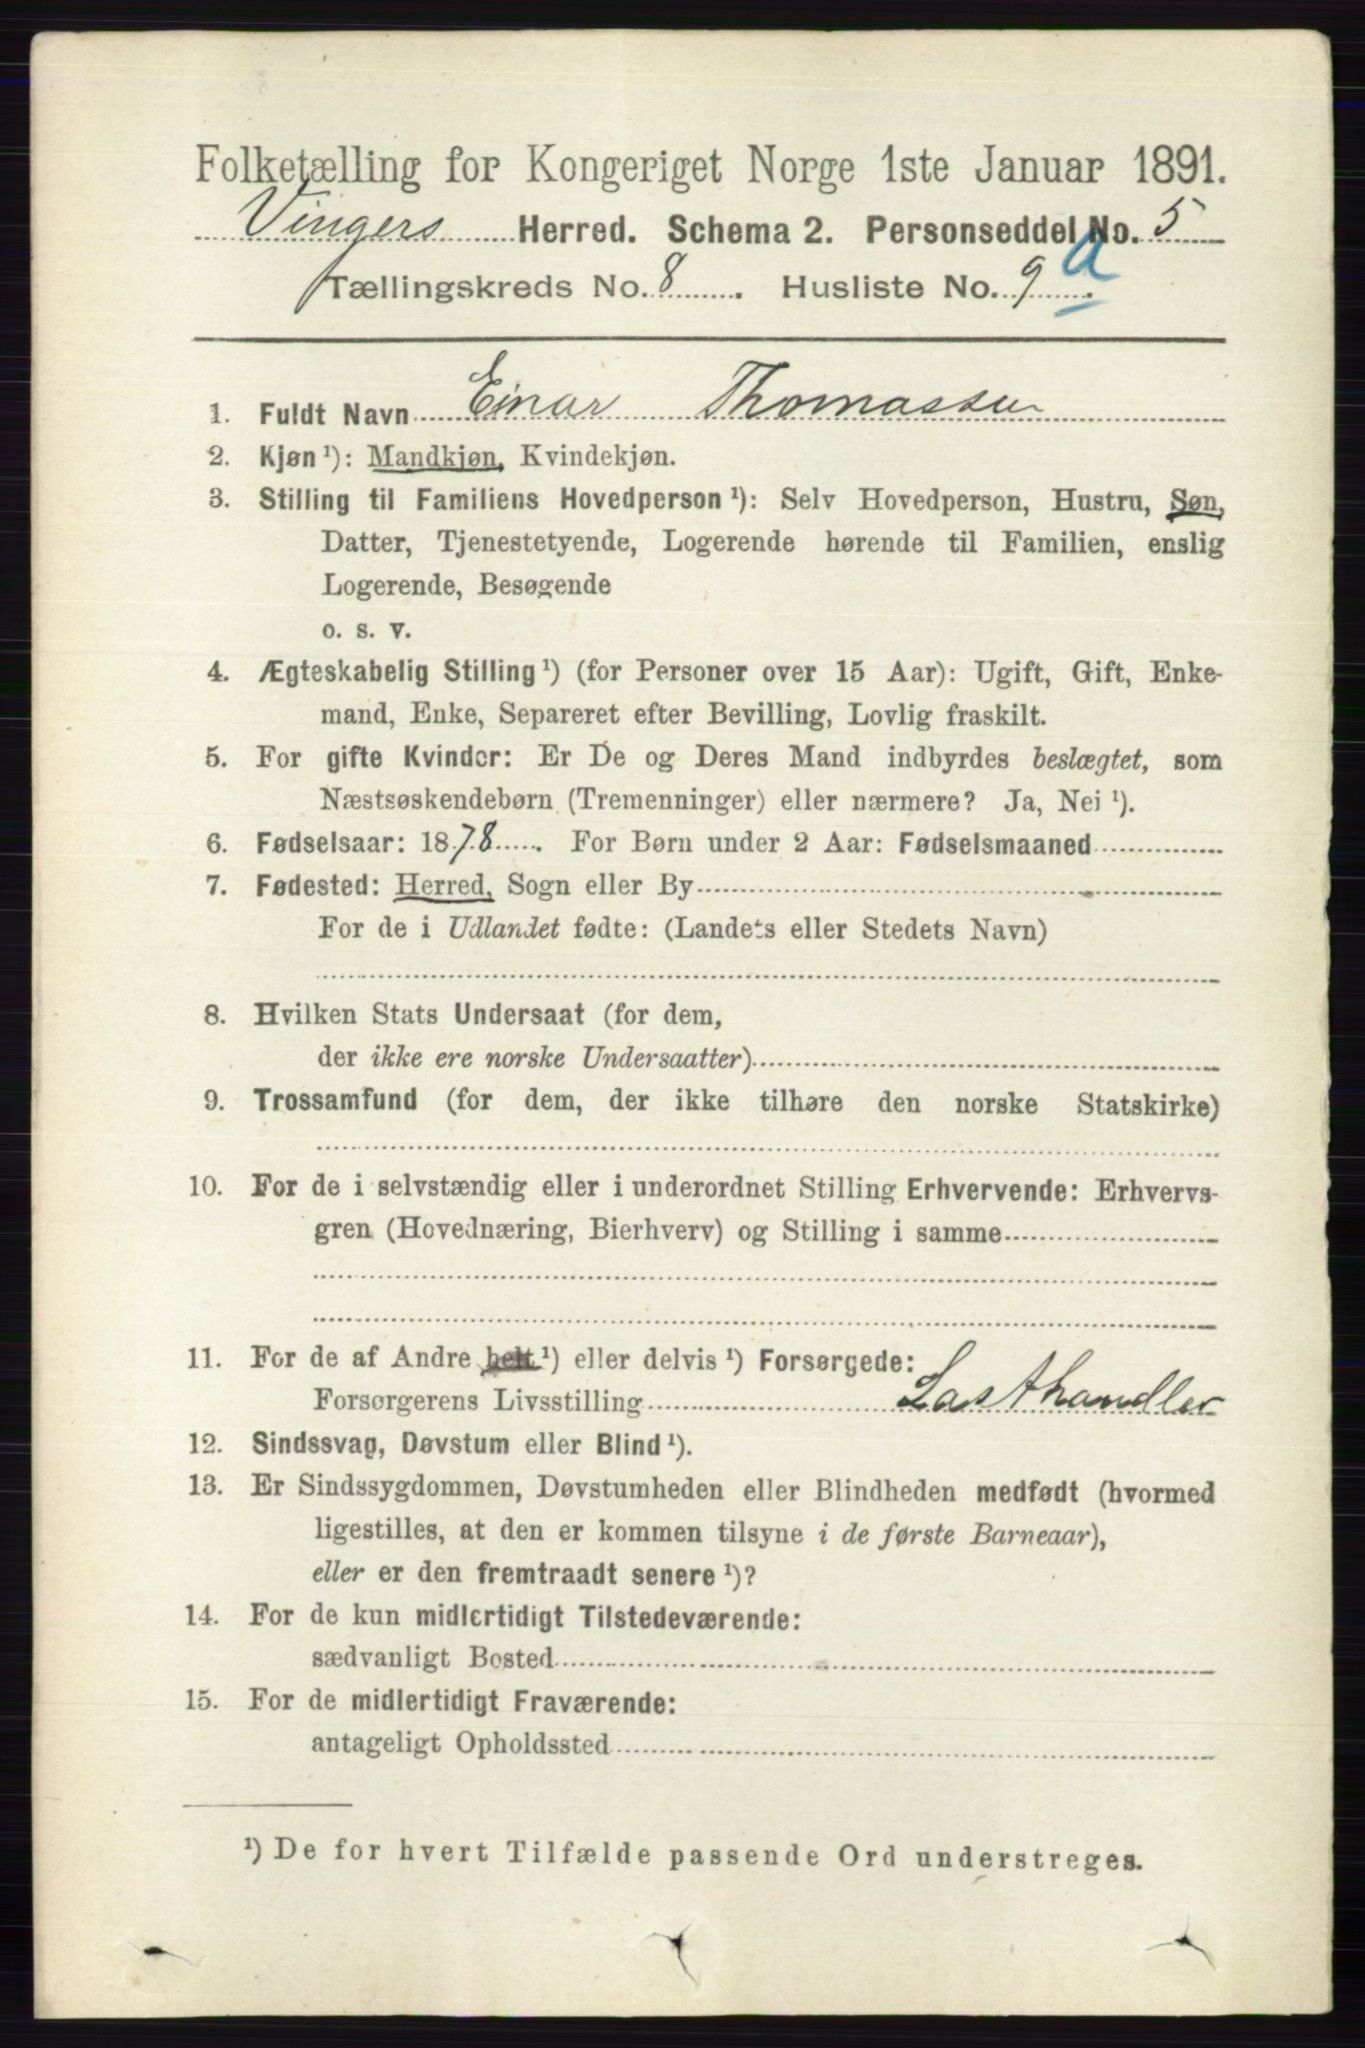 Folketælling for Kongeriget Norge 1ste Januar 1891.
Vingers Herred. Schema 2. Personseddel No. 5
Tællingskreds No. 8 . Husliste No. 9 a .
1. Fuldt Navn Einar Thomassen
2. Kjøn ¹): Mandkjøn, Kvindekjøn.
3. Stilling til Familiens Hovedperson ¹): Selv Hovedperson, Hustru, Søn,
Datter, Tjenestetyende, Logerende hørende til Familien, enslig
Logerende, Besøgende
o. s. v.
4. Ægteskabelig Stilling ¹) (for Personer over 15 Aar): Ugift, Gift, Enke-
mand, Enke, Separeret efter Bevilling, Lovlig fraskilt.
5. For gifte Kvinder: Er De og Deres Mand indbyrdes beslægtet, som
Næstsøskendebørn (Tremenninger) eller nærmere? Ja, Nei ¹).
6. Fødselsaar: 1878 . For Børn under 2 Aar: Fødselsmaaned
7. Fødested: Herred, Sogn eller By
For de i Udlandet fødte: (Landets eller Stedets Navn)
8. Hvilken Stats Undersaat (for dem,
der ikke ere norske Undersaatter)
9. Trossamfund (for dem, der ikke tilhøre den norske Statskirke)
10. For de i selvstændig eller i underordnet Stilling Erhvervende: Erhvervs-
gren (Hovednæring, Bierhverv) og Stilling i samme
11. For de af Andre helt ¹) eller delvis ¹) Forsørgede:
Forsørgerens Livsstilling Lasthandler
12. Sindssvag, Døvstum eller Blind ¹).
13. Er Sindssygdommen, Døvstumheden eller Blindheden medfødt (hvormed
ligestilles, at den er kommen tilsyne i de første Barneaar),
eller er den fremtraadt senere ¹)?
14. For de kun midlertidigt Tilstedeværende:
sædvanligt Bosted
15. For de midlertidigt Fraværende:
antageligt Opholdssted
¹) De for hvert Tilfælde passende Ord understreges.